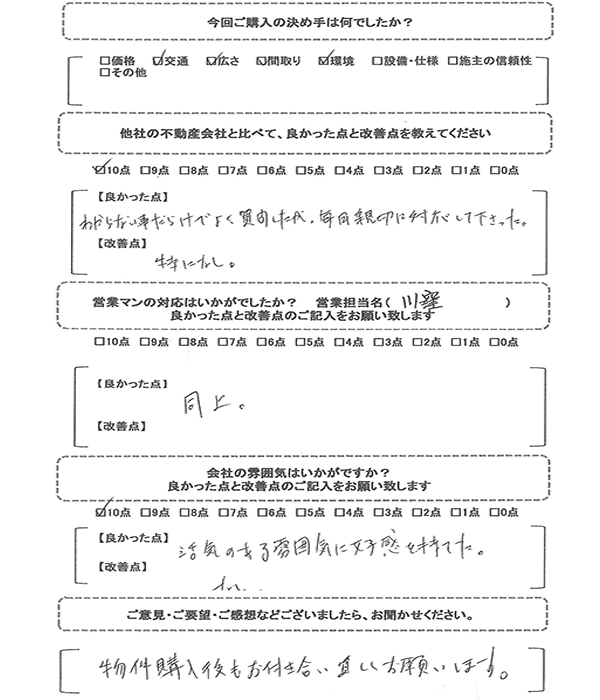 今回ご購入の決め手は何でしたか？
□価格 ☑交通 ☑広さ ☑間取り ☑環境 □設備・仕様 □施主の信頼性
□その他
他社の不動産会社と比べて、良かった点と改善点を教えてください
☑10点 □9点 □8点 □7点 □6点 □5点 □4点 □3点 □2点 □1点 □0点
【良かった点】
わからない事だらけでよく質問したが、毎回親切に対応して下さった。
【改善点】
特になし。
営業マンの対応はいかがでしたか？ 営業担当名( 川窪 )
良かった点と改善点のご記入をお願い致します
□10点 □9点 □8点 □7点 □6点 □5点 □4点 □3点 □2点 □1点 □0点
【良かった点】
同上。
【改善点】
会社の雰囲気はいかがですか？
良かった点と改善点のご記入をお願い致します
☑10点 □9点 □8点 □7点 □6点 □5点 □4点 □3点 □2点 □1点 □0点
【良かった点】
活気のある雰囲気に好感を持てた。
【改善点】
ご意見・ご要望・ご感想などございましたら、お聞かせください。
物件購入後もお付き合い宜しくお願いします。